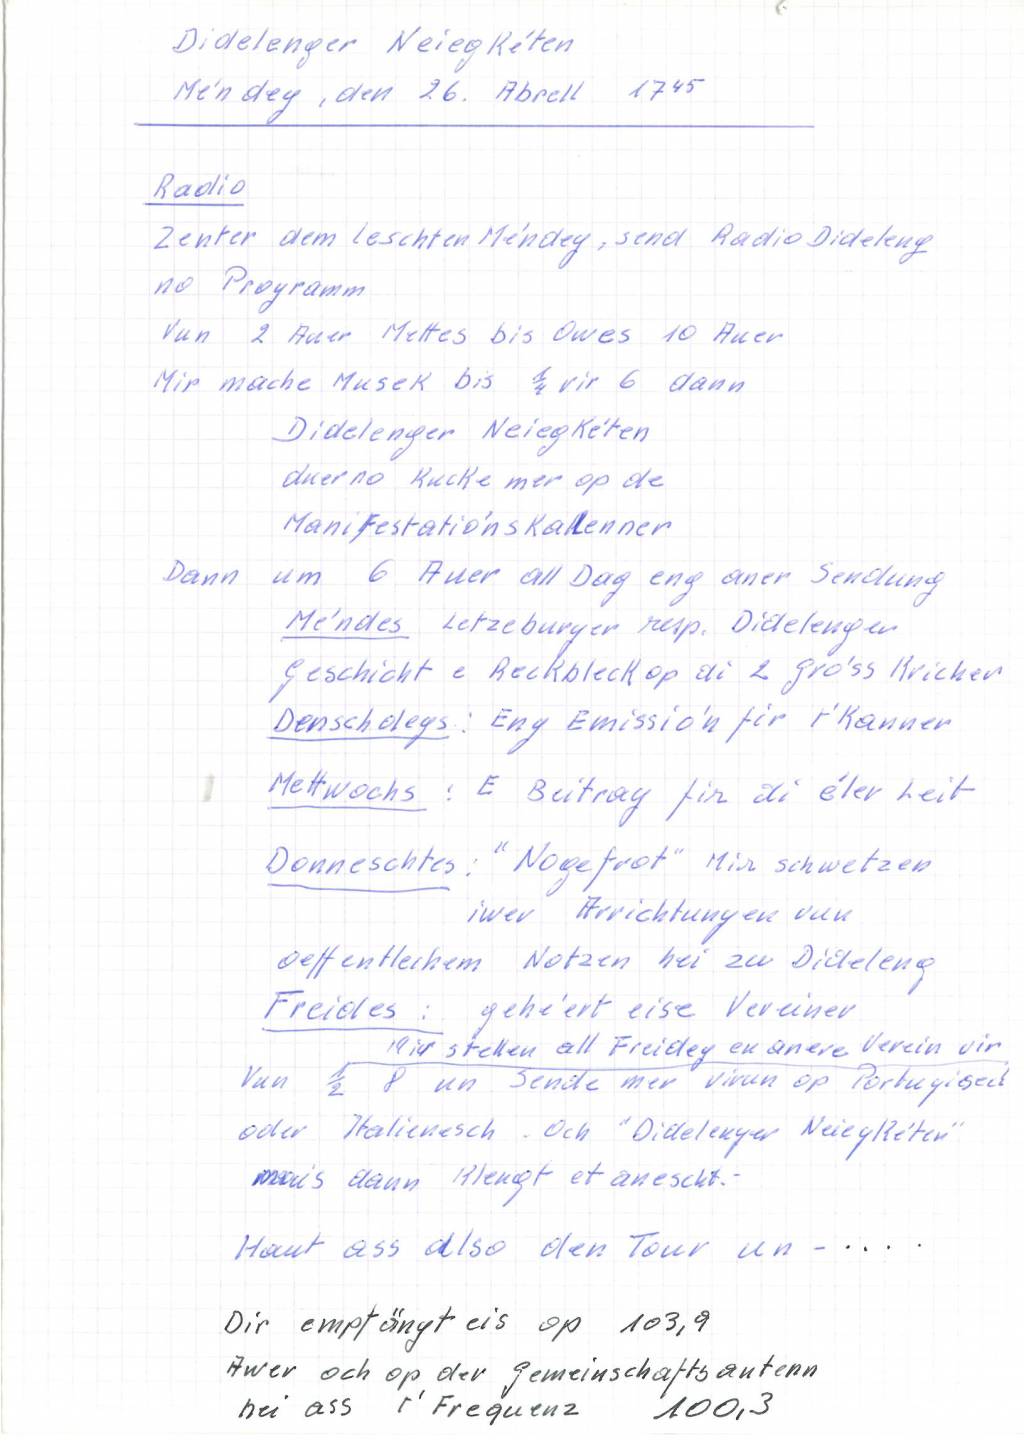 Didelenger Neiegkéten
Méndeg, den 26. Abrell 17⁴⁵
Radio
Zenter dem leschten Méndeg, send Radio Dideleng
no Programm
Vun 2 Auer Mettes bis Owes 10 Auer
Mir mache Musek bis ¼ vir 6 dann
Didelenger Neiegkéten
duerno kucke mer op de
Manifestatiónskalenner
Dann um 6 Auer all Dag eng aner Sendung
Méndes Letzeburger resp. Didelenger
Geschicht e Reckbleck op di 2 gróss Kricher
Denschdegs: Eng Emissión fir t'Kanner
Mettwochs: E Beitrag fir di éler Leit
Donneschtes: "Nogefrot" Mir schwetzen
iwer Arrichtungen vun
oeffentlechem Notzen hei zu Dideleng
Freides: gehéert eise Vereiner
Mir stellen all Freideg en anere Verein vir
Vun ½ 8 un Sende mer virun op Portugisesch
oder Italienesch. Och "Didelenger Neiegkéten"
mais dann klengt et anescht.-
Haut ass also den Tour un - ....
Dir empfängt eis op 103,9
Awer och op der Gemeinschaftsantenn
hei ass t'Frequenz 100,3